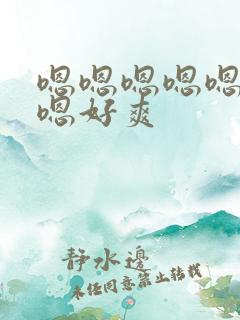 嗯嗯嗯嗯嗯
嗯好爽
静水边
未经同意禁止转载